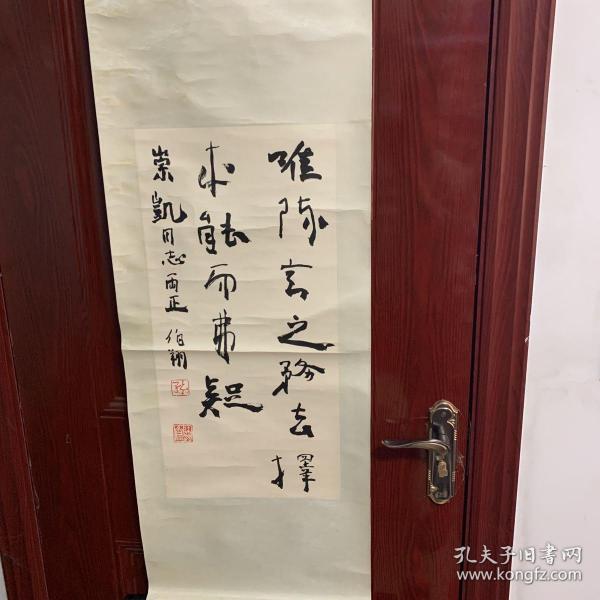 唯陈言之務去擇
能而弗疑
崇凱同志両正 伯翔
孔夫子旧書网
www.kongfz.com